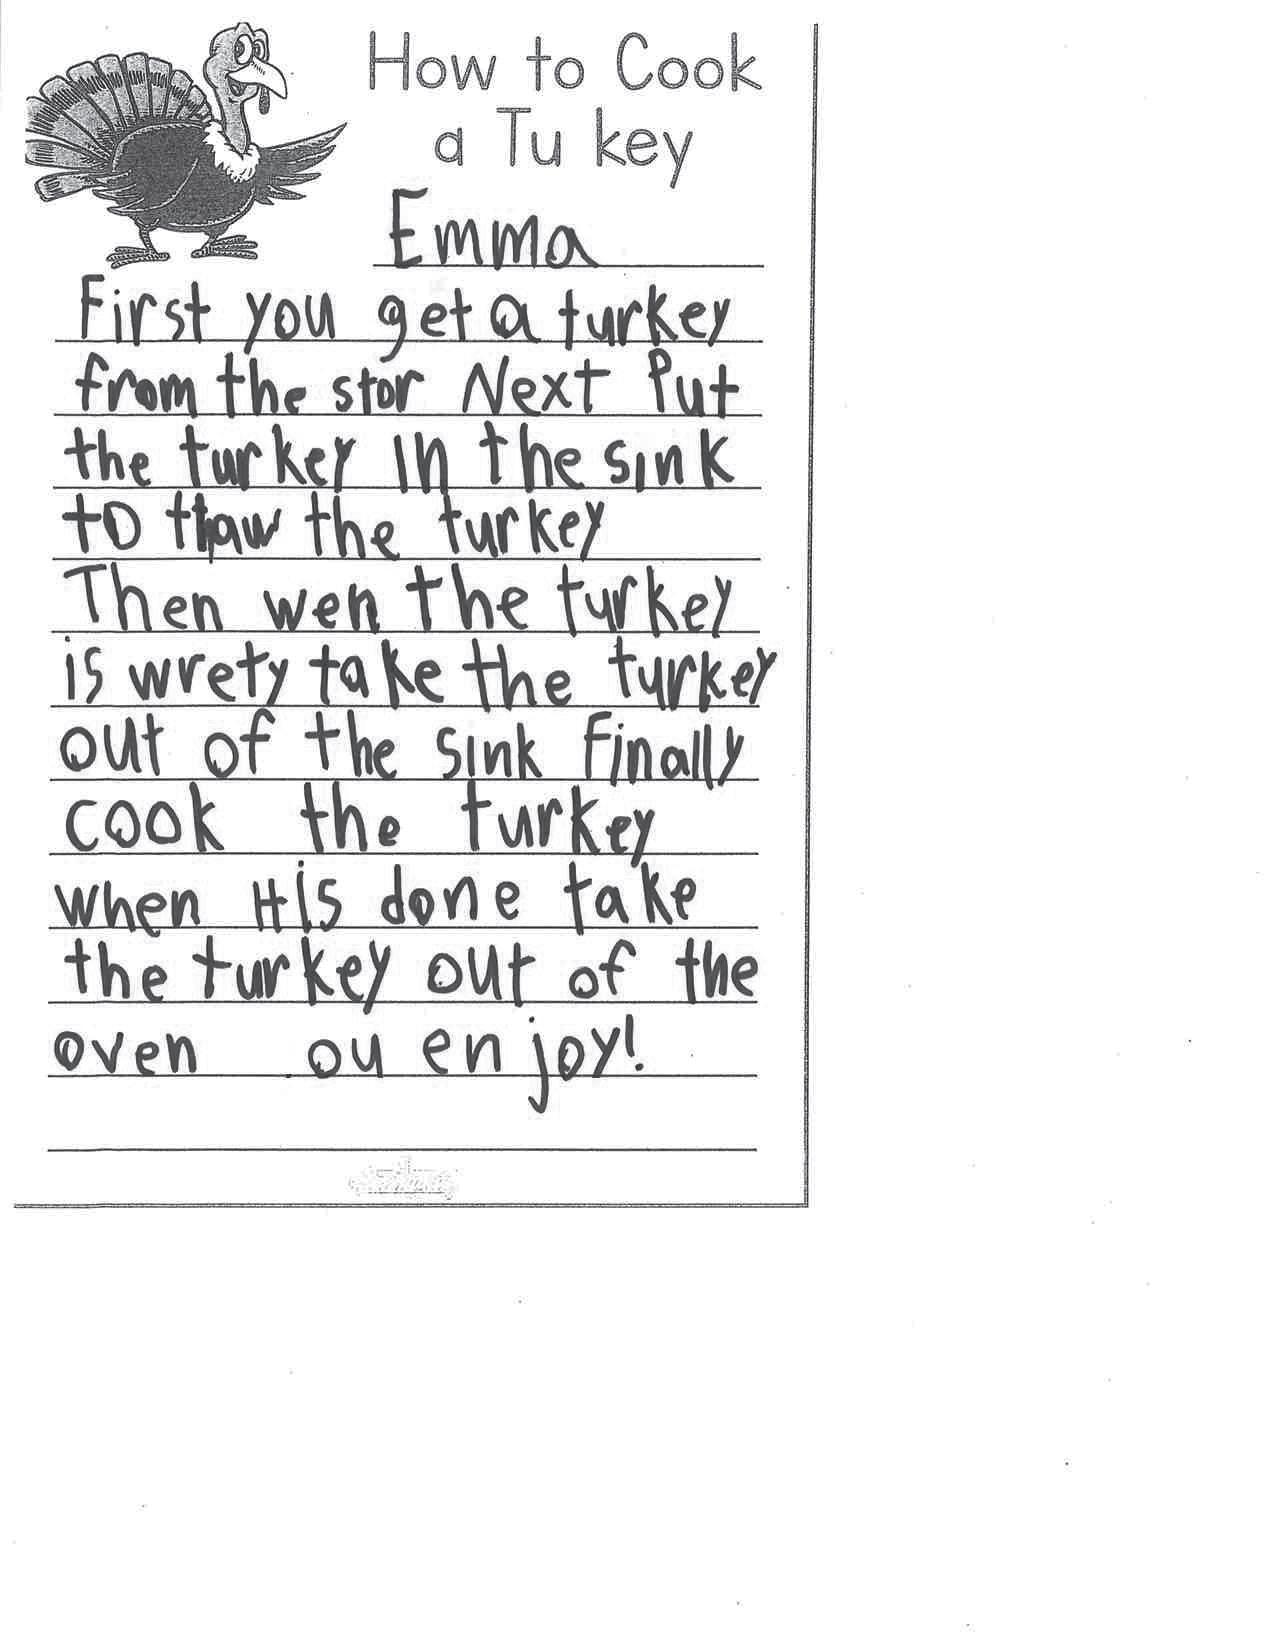 How to Cook
a Tu key
Emma
First you get a turkey
from the stor Next Put
the turkey in the sink
to thaw the turkey
Then wen the turkey
is wrety take the turkey
out of the sink Finally
cook the turkey
when His done take
the turkey out of the
oven ou enjoy!